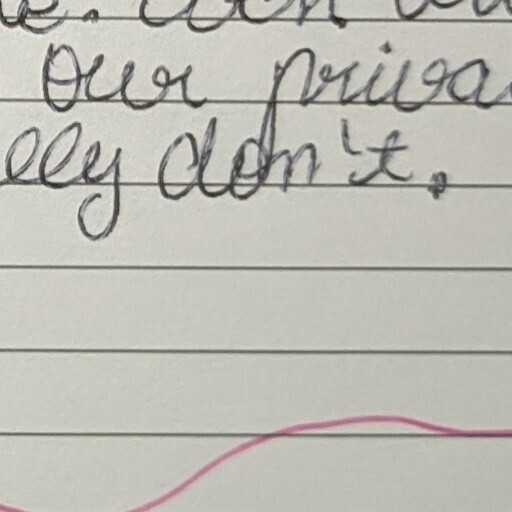 our priva
lly don't.